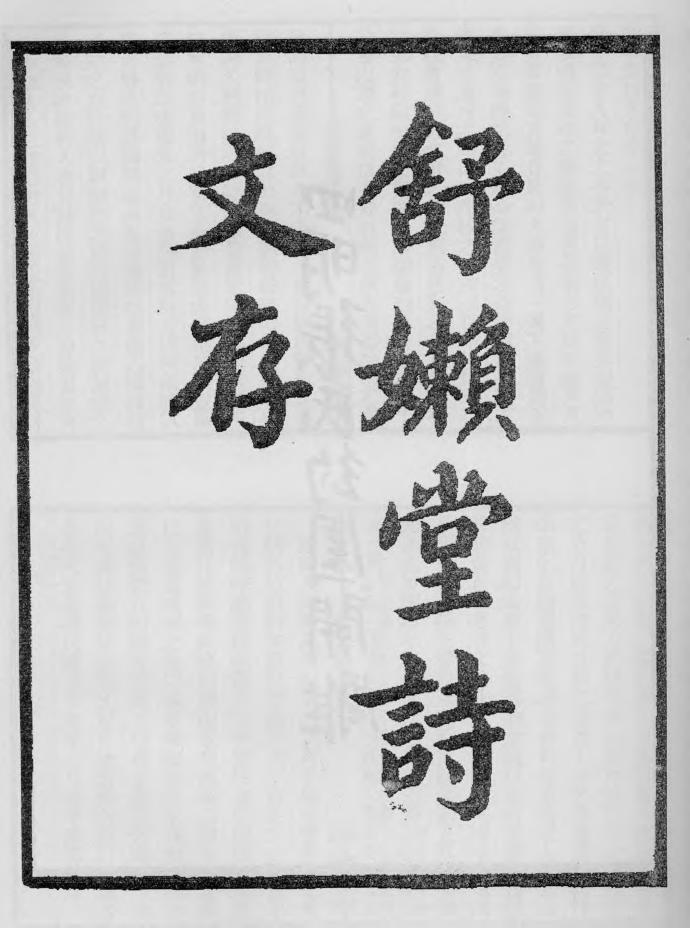 舒嬾堂詩
文存